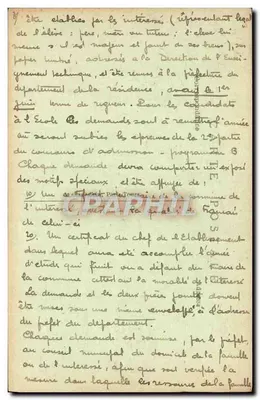 1/ Etre établies par les intéressés (représentant légal
de l'élève : père, mère ou tuteur ; l'élève lui
même s'il est majeur et jouit de ses biens), sur
papier timbré, adressés à la Direction de l'Ensei-
gnement technique, et être remises à la préfecture du
département de la résidence, avant le 1er
juin terme de rigueur. Pour les candidats
à l'Ecole les demandes sont à remettre année
où seront subies les épreuves de la 2e partie
du concours d'admission - programme B
Chaque demande devra comporter un exposé
des motifs spéciaux, et être appuyée de :
1o/ Un
l'intéressé la qualité de français
de celui-ci
2o/ Un certificat du chef de l'Etablissement
dans lequel aura été accomplie l'année
d'étude qui finit ou à défaut du maire de
la commune attestant la moralité de l'intéressé
La demande et les deux pièces doivent
être mises sous une même enveloppe à l'adresse
du préfet du département.
Chaque demande est soumise, par le préfet,
au conseil municipal du domicile de la famille
ou de l'intéressé, afin que soit vérifiée la
mesure dans laquelle les ressources de la famille
CARTPOSTALES